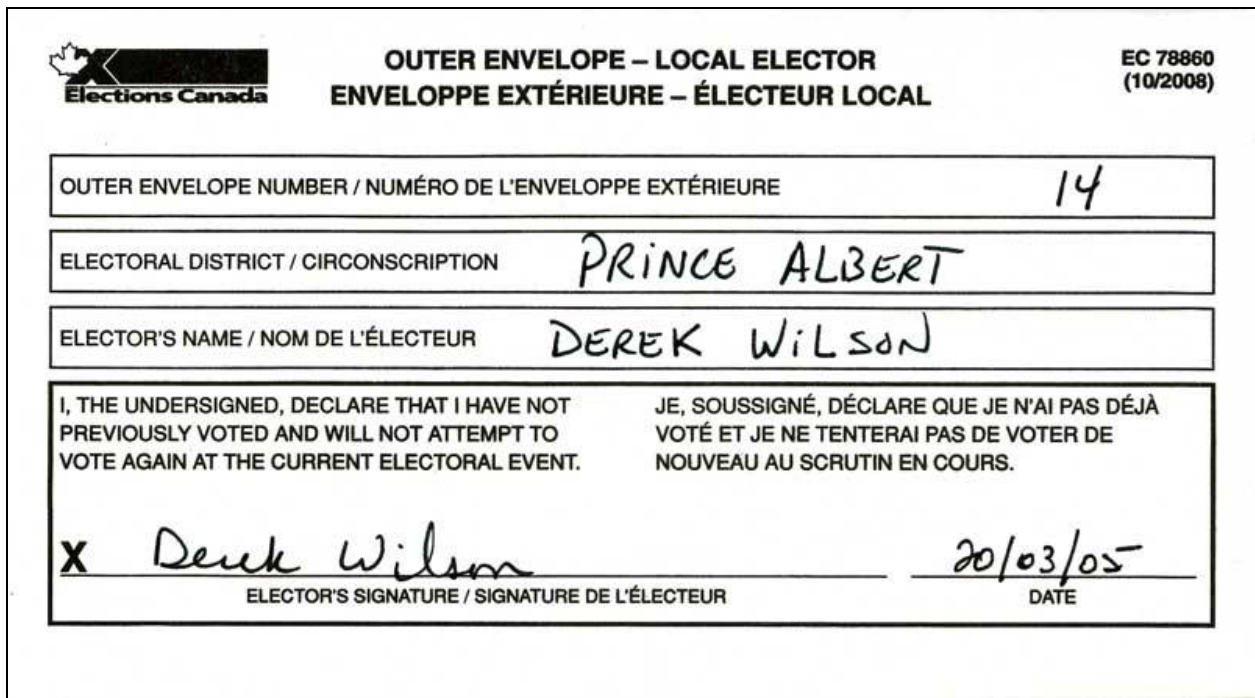 Elections Canada
OUTER ENVELOPE – LOCAL ELECTOR
ENVELOPPE EXTÉRIEURE – ÉLECTEUR LOCAL
EC 78860
(10/2008)
OUTER ENVELOPE NUMBER / NUMÉRO DE L'ENVELOPPE EXTÉRIEURE 14
ELECTORAL DISTRICT / CIRCONSCRIPTION PRiNCE ALBERT
ELECTOR'S NAME / NOM DE L'ÉLECTEUR DEREK WiLSON
I, THE UNDERSIGNED, DECLARE THAT I HAVE NOT
PREVIOUSLY VOTED AND WILL NOT ATTEMPT TO
VOTE AGAIN AT THE CURRENT ELECTORAL EVENT.
JE, SOUSSIGNÉ, DÉCLARE QUE JE N'AI PAS DÉJÀ
VOTÉ ET JE NE TENTERAI PAS DE VOTER DE
NOUVEAU AU SCRUTIN EN COURS.
X Derek Wilson 20/03/05
ELECTOR'S SIGNATURE / SIGNATURE DE L'ÉLECTEUR DATE